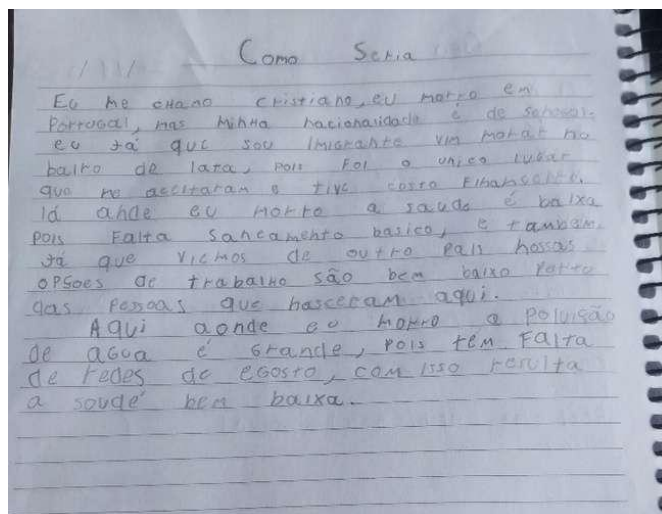 Como Seria
Eu me chamo cristiano, eu morro em
Portugal, mas minha nacionalidade é de senegal,
eu já que sou imigrante vim morar no
bairo de lata, pois foi o unico lugar
que me aceitaram e tive custo
lá ahde eu morro a saude é baixa
pois falta saneamento basico, e tambem
já que viemos de outro pais nossas
opsoes de trabalho são bem baixo perto
das pessoas que nasceram aqui.
Aqui aonde eu morro a poluisão
de agua é grande, pois tem falta
de redes de egosto, com isso resulta
a soude bem baixa.